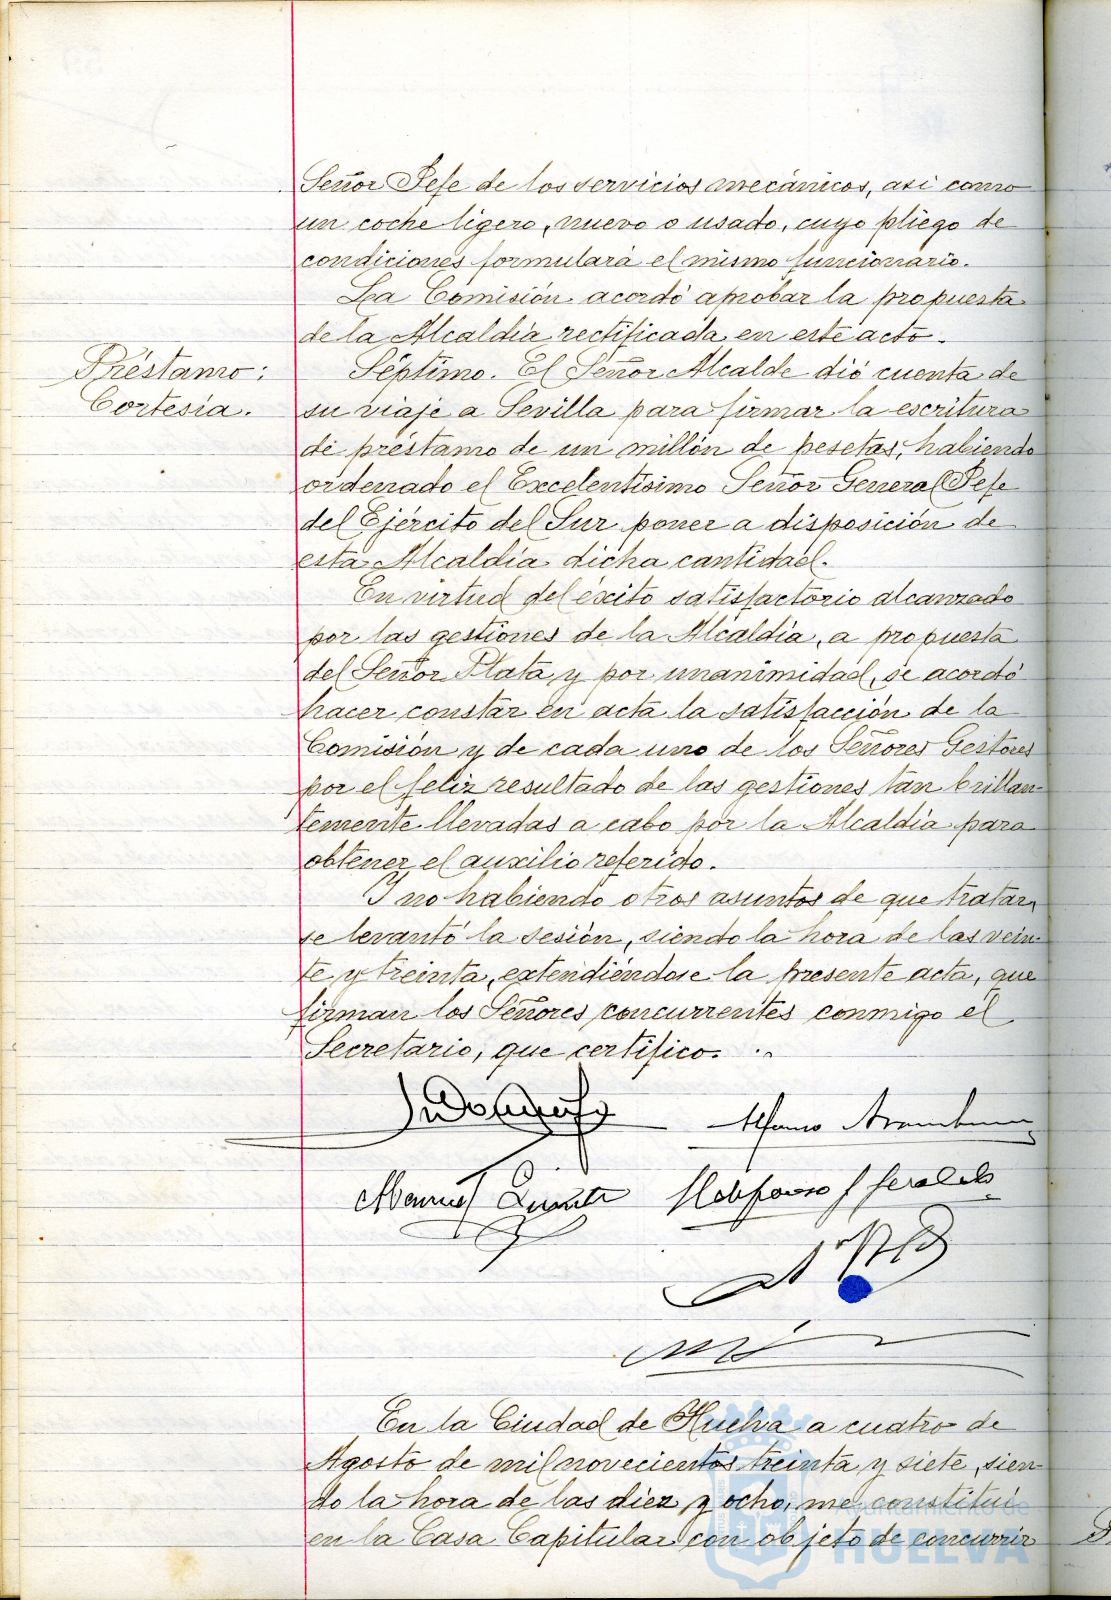 Señor Jefe de los servicios mecánicos, asi como
un coche ligero, nuevo o usado, cuyo pliego de
condiciones formulará el mismo funcionario.
La Comisión acordó aprobar la propuesta
de la Alcaldía rectificada en este acto.
Préstamo:
Cortesía.
Séptimo. El Señor Alcalde dió cuenta de
su viaje a Sevilla para firmar la escritura
de préstamo de un millón de pesetas, habiendo
ordenado el Excelentísimo Señor General Jefe
del Ejército del Sur poner a disposición de
esta Alcaldía dicha cantidad.
En virtud del éxito satisfactorio alcanzado
por las gestiones de la Alcaldía, a propuesta
del Señor Plata, y por unanimidad, se acordó
hacer constar en acta la satisfacción de la
Comisión y de cada uno de los Señores Gestores
por el feliz resultado de las gestiones tan brillan-
temente llevadas a cabo por la Alcaldía para
obtener el auxilio referido.
Y no habiendo otros asuntos de que tratar,
se levantó la sesión, siendo la hora de las vein-
te y treinta, extendiéndose la presente acta, que
firman los Señores concurrentes conmigo el
Secretario, que certifico.
Manuel
En la Ciudad de Huelva a cuatro de
Agosto de mil novecientos treinta y siete, sien-
do la hora de las diez y ocho, me constituí
en la Casa Capitular con objeto de concurrir
Ayuntamiento de
HUELVA